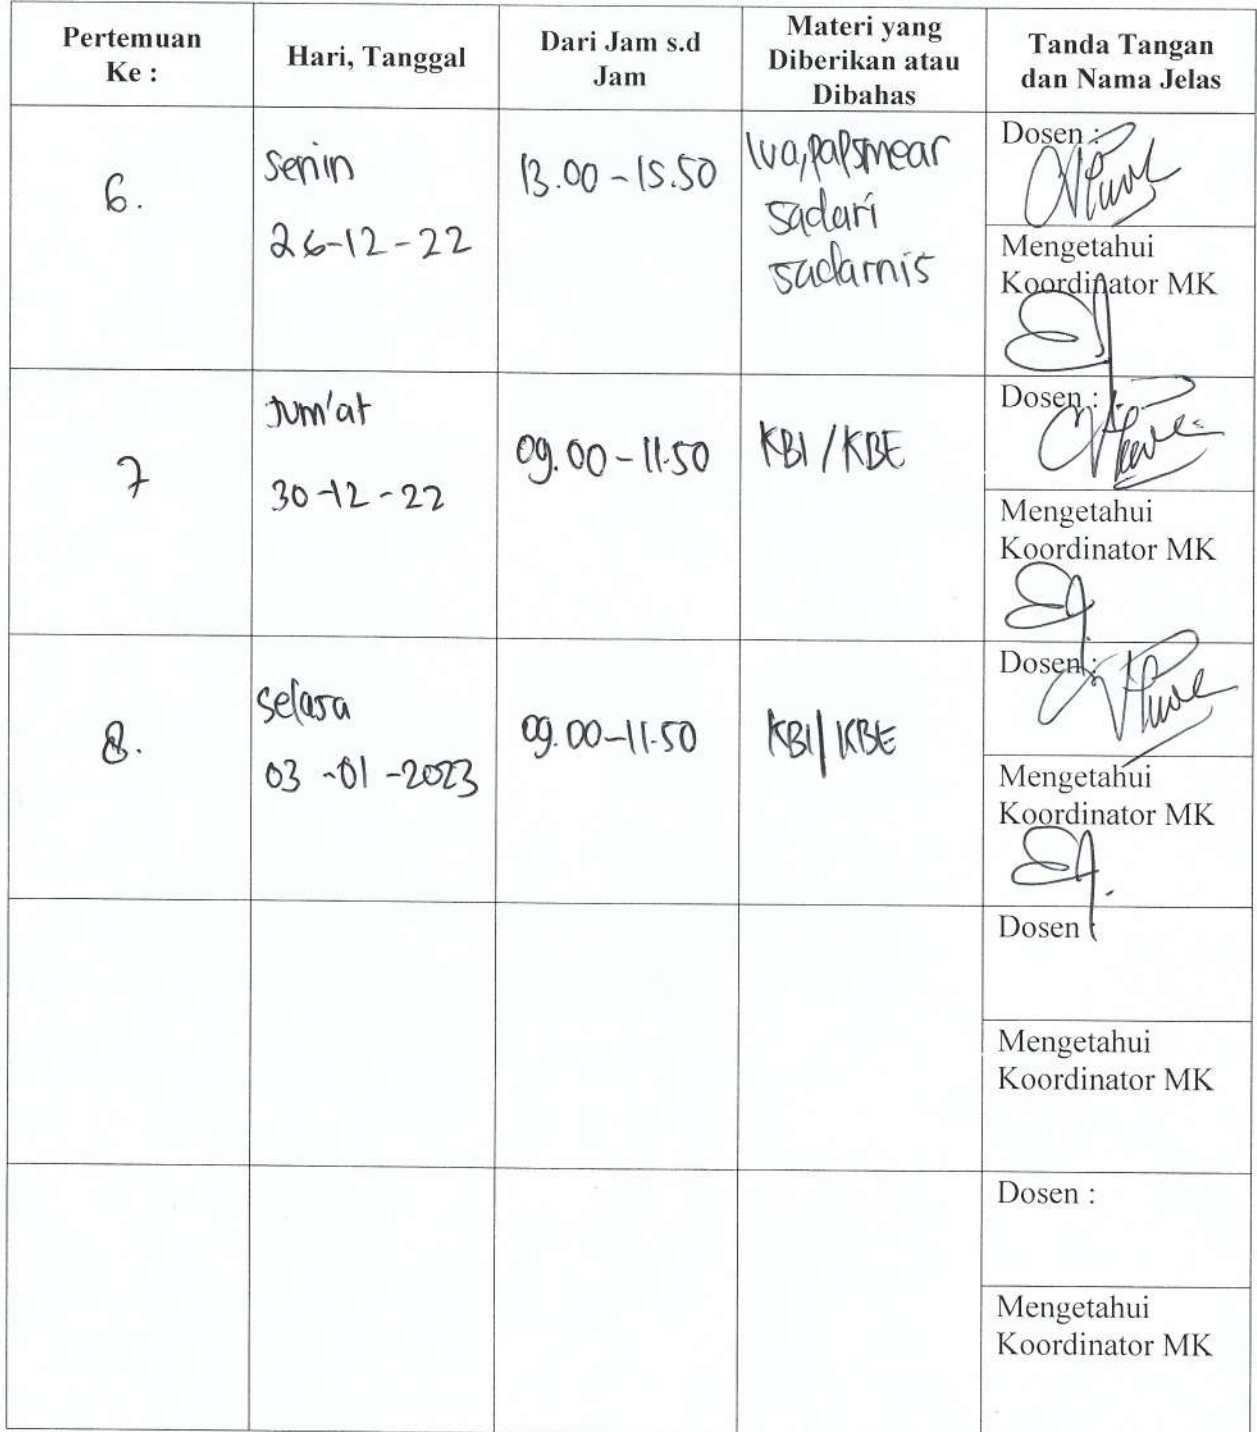 Pertemuan
Ke :
Hari, Tanggal
Dari Jam s.d
Jam
Materi yang
Diberikan atau
Dibahas
Tanda Tangan
dan Nama Jelas
6.
senin
26-12-22
13.00-15.50
Iva,papsmear
sadari
sadarnis
Dosen :
Mengetahui
Koordinator MK
7
Jum'at
30-12-22
09.00-11.50
KBI/KBE
Dosen :
Mengetahui
Koordinator MK
8.
selasa
03-01-2023
09.00-11.50
KBI/KBE
Dosen :
Mengetahui
Koordinator MK
Dosen
Mengetahui
Koordinator MK
Dosen :
Mengetahui
Koordinator MK